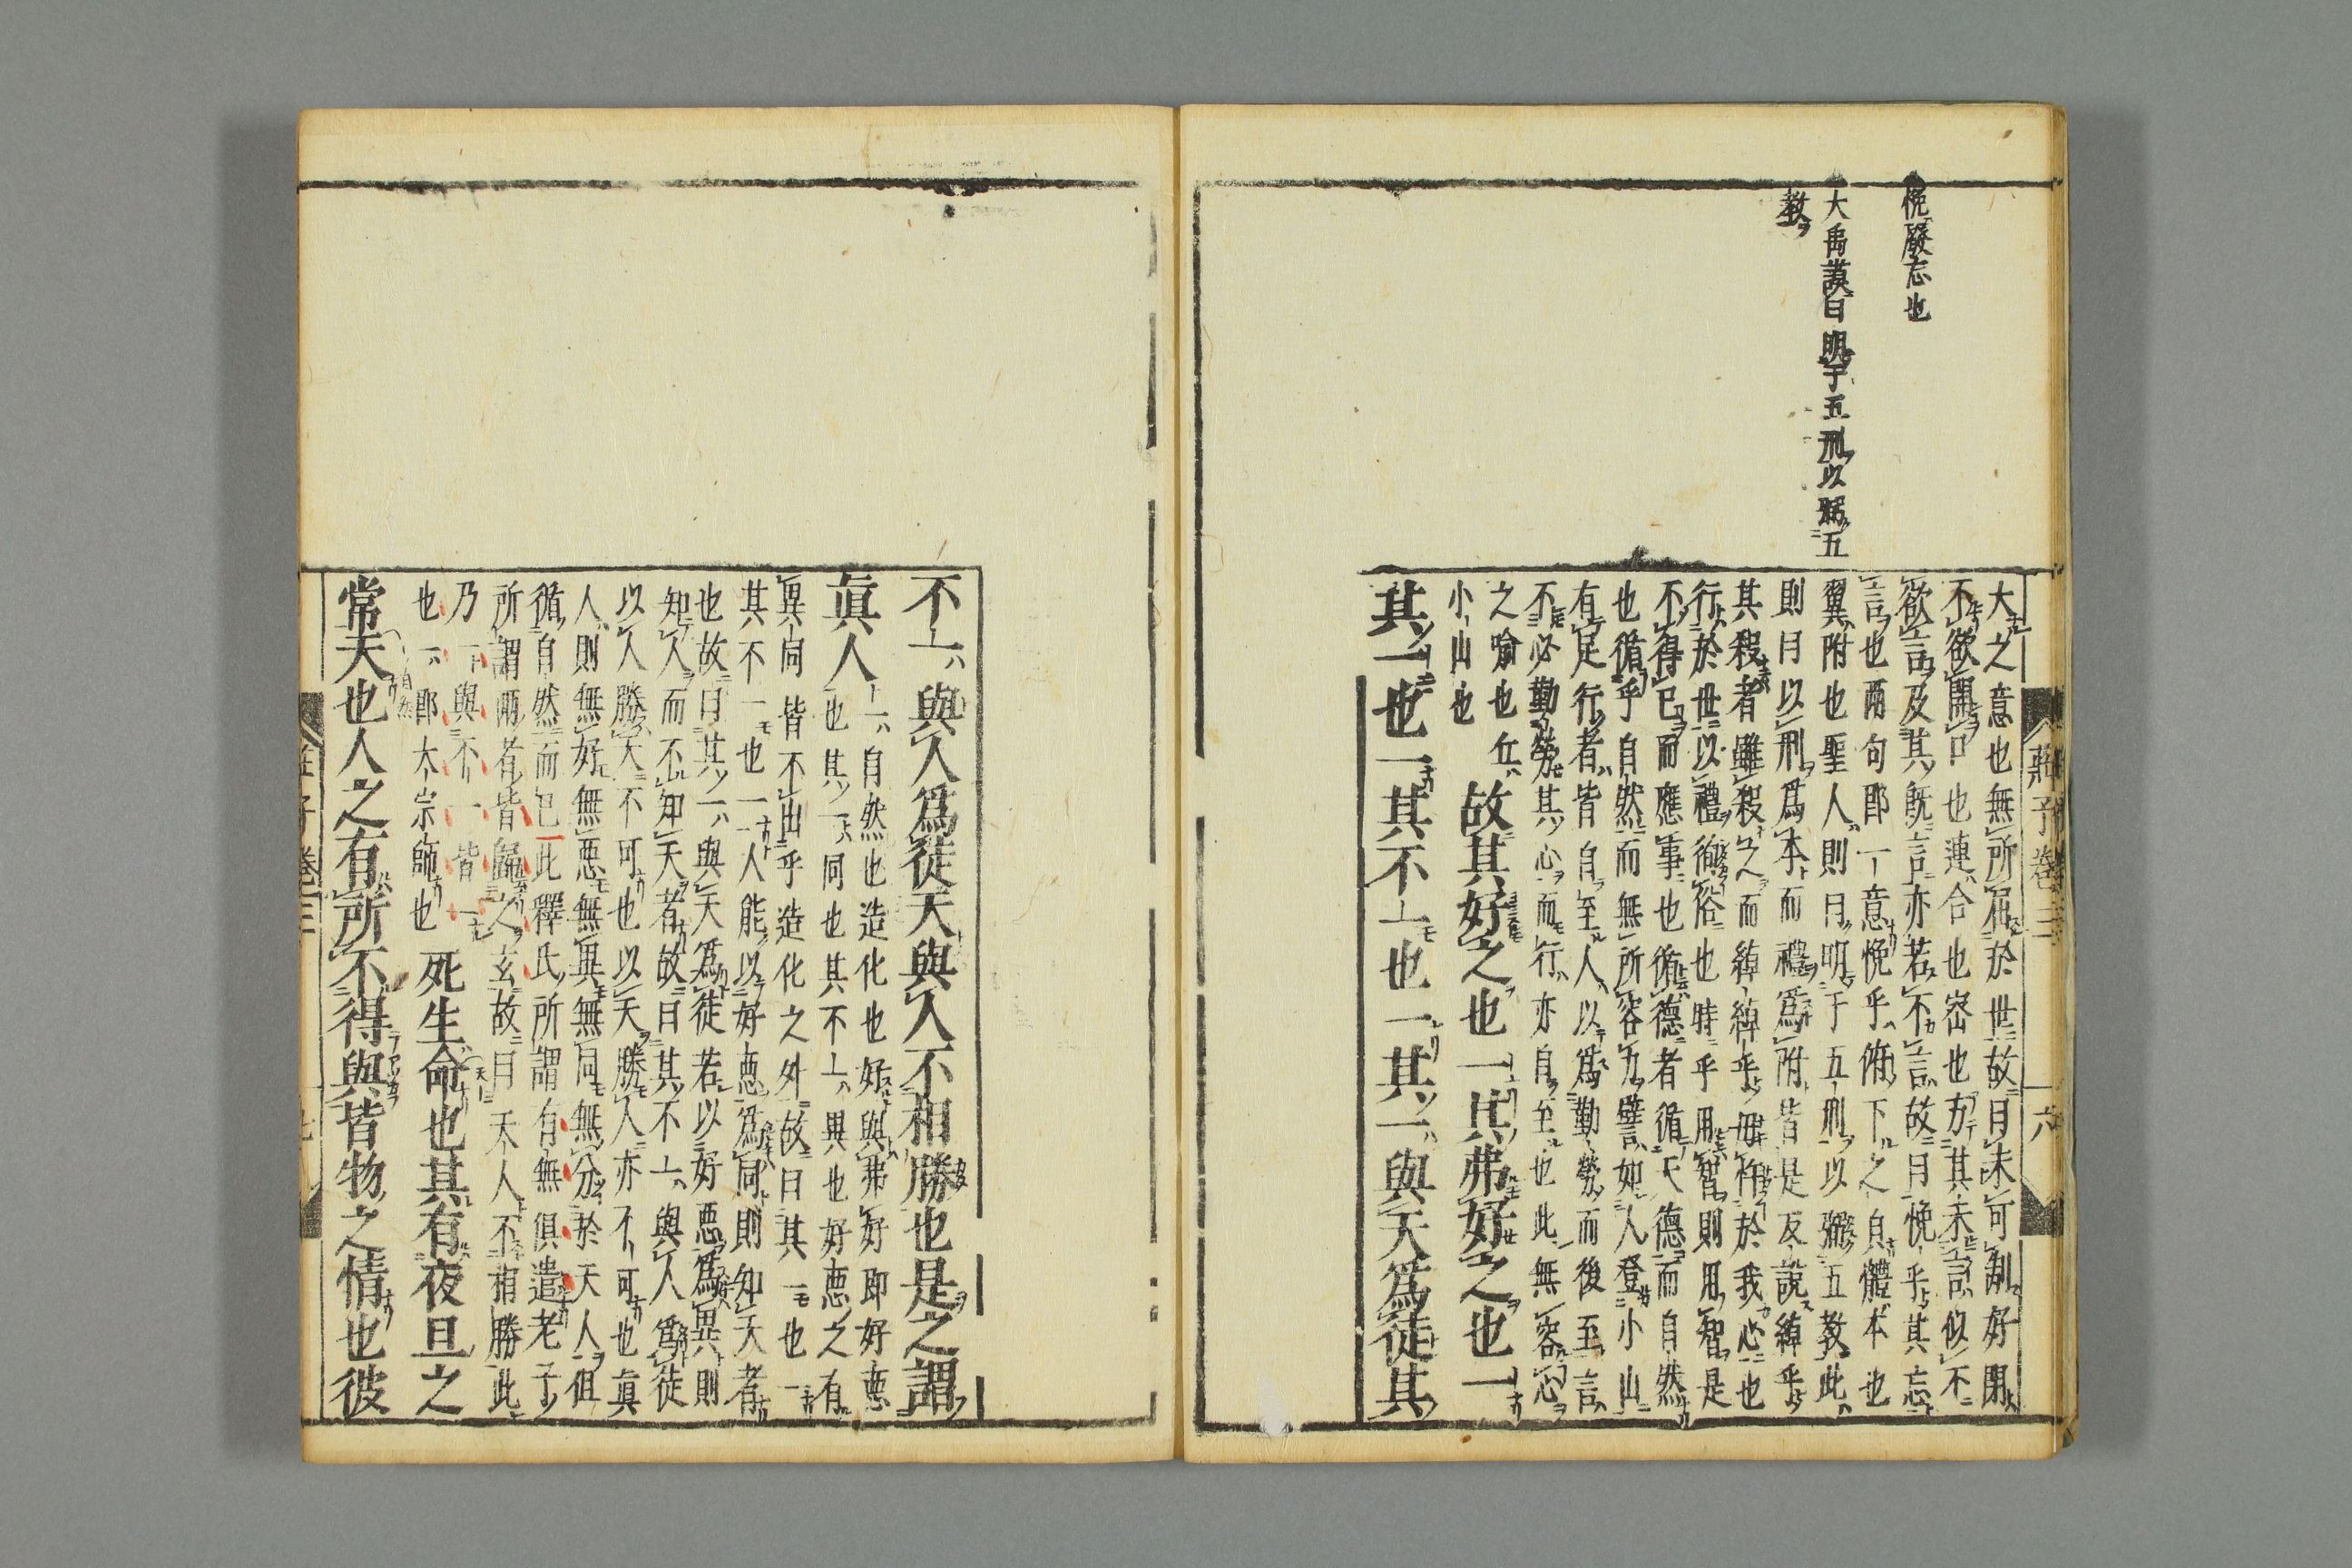 悗廢忘也
大禹謨曰明于五刑以弼五
教
大之意也無所屈於世故曰未可制好閉
不欲開口也連合也密也方其未言似不
欲言及其既言亦若不言故曰悗乎其忘
言也兩句即一意悗乎俯下之貌體本也
翼附也聖人則曰明于五刑以弼五教此
則曰以刑爲本而禮爲附皆是反說綽乎
其殺者雖殺之而綽綽乎毋作於我心也
行於世以禮徇俗也時乎用智則用智是
不得已而應事也循德者循天德而自然
也循乎自然而無所容力譬如人登小山
有足行者皆自至人以爲勤勞而後至言
不必勤勞其心而行亦自至也此無容心
之喻也丘
小山也
故其好之也一其弗好之也一
其一也一其不一也一其一與天爲徒其
莊子卷三
六
不一與人爲徒天與人不相勝也是之謂
眞人
一自然也造化也好與弗好即好惡
也其一同也其不一異也好惡之有
異同皆不出乎造化之外故曰其一也一
其不一也一人能以好惡爲同則知天者
也故曰其一與天爲徒若以好惡爲異則
知人而不知天者故曰其不一與人爲徒
以人勝天不可也以天勝人亦不可也眞
人則無好無惡無異無同無分於天人但
循自然而已此釋氏所謂有無俱遣老子
所謂兩者皆歸之玄故曰天人不相勝此
乃一與不一皆一
也一即大宗師也
死生命也其有夜旦之
常天也人之有所不得與皆物之情也彼
莊子卷三
七